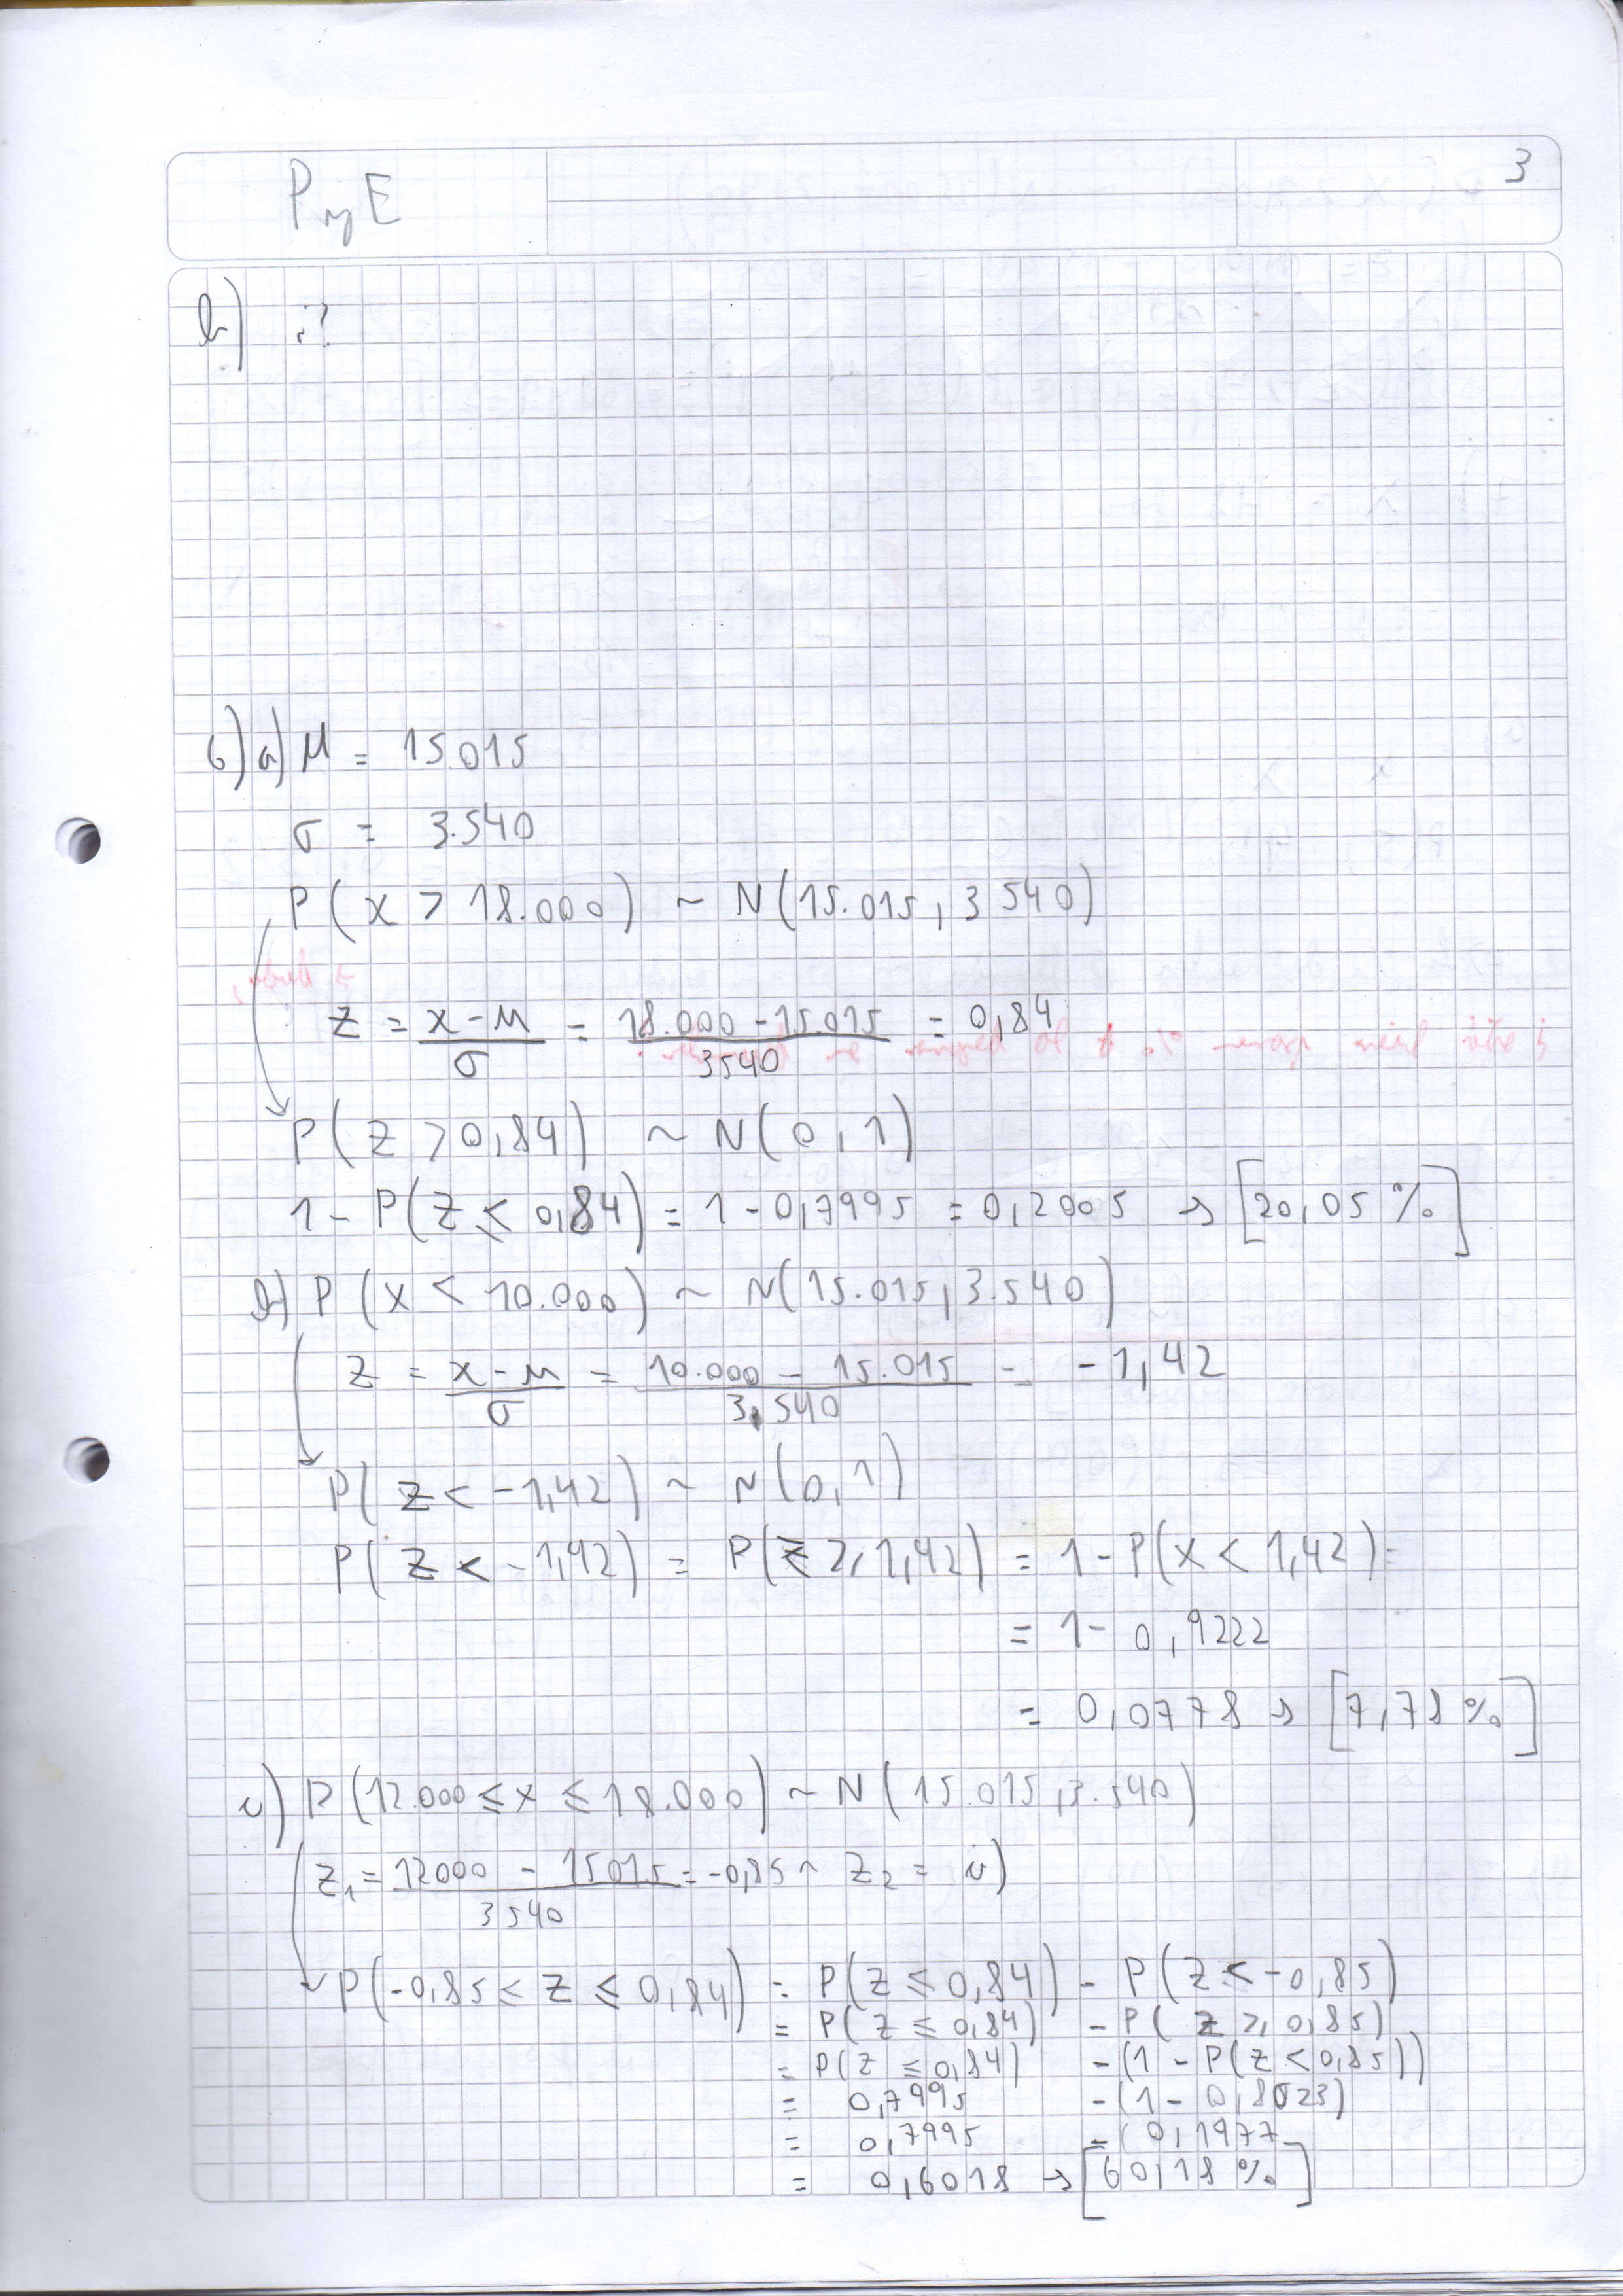 PyE
3
b) ¿?
6) a) μ = 15.015
σ = 3.540
P(x > 18.000) ~ N(15.015, 3540)
z = x-μ / σ = 18.000 - 15.015 / 3540 = 0,84
P(z > 0,84) ~ N(0,1)
1 - P(z ≤ 0,84) = 1 - 0,7995 = 0,2005 → [20,05 %]
b) P(x < 10.000) ~ N(15.015, 3.540)
z = x-μ / σ = 10.000 - 15.015 / 3.540 = -1,42
P(z < -1,42) ~ N(0,1)
P(z < -1,42) = P(z ≥ 1,42) = 1 - P(x < 1,42) =
= 1 - 0,9222
= 0,0778 → [7,78 %]
c) P(12.000 ≤ x ≤ 18.000) ~ N(15.015, 3.540)
z₁ = 12000 - 15015 / 3540 = -0,85 ~ z₂ = a)
P(-0,85 < z ≤ 0,84) = P(z ≤ 0,84) - P(z < -0,85)
= P(z ≤ 0,84) - P(z ≥ 0,85)
= P(z ≤ 0,84) - (1 - P(z < 0,85))
= 0,7995 - (1 - 0,8023)
= 0,7995 - (0,1977
= 0,6018 → [60,18 %]